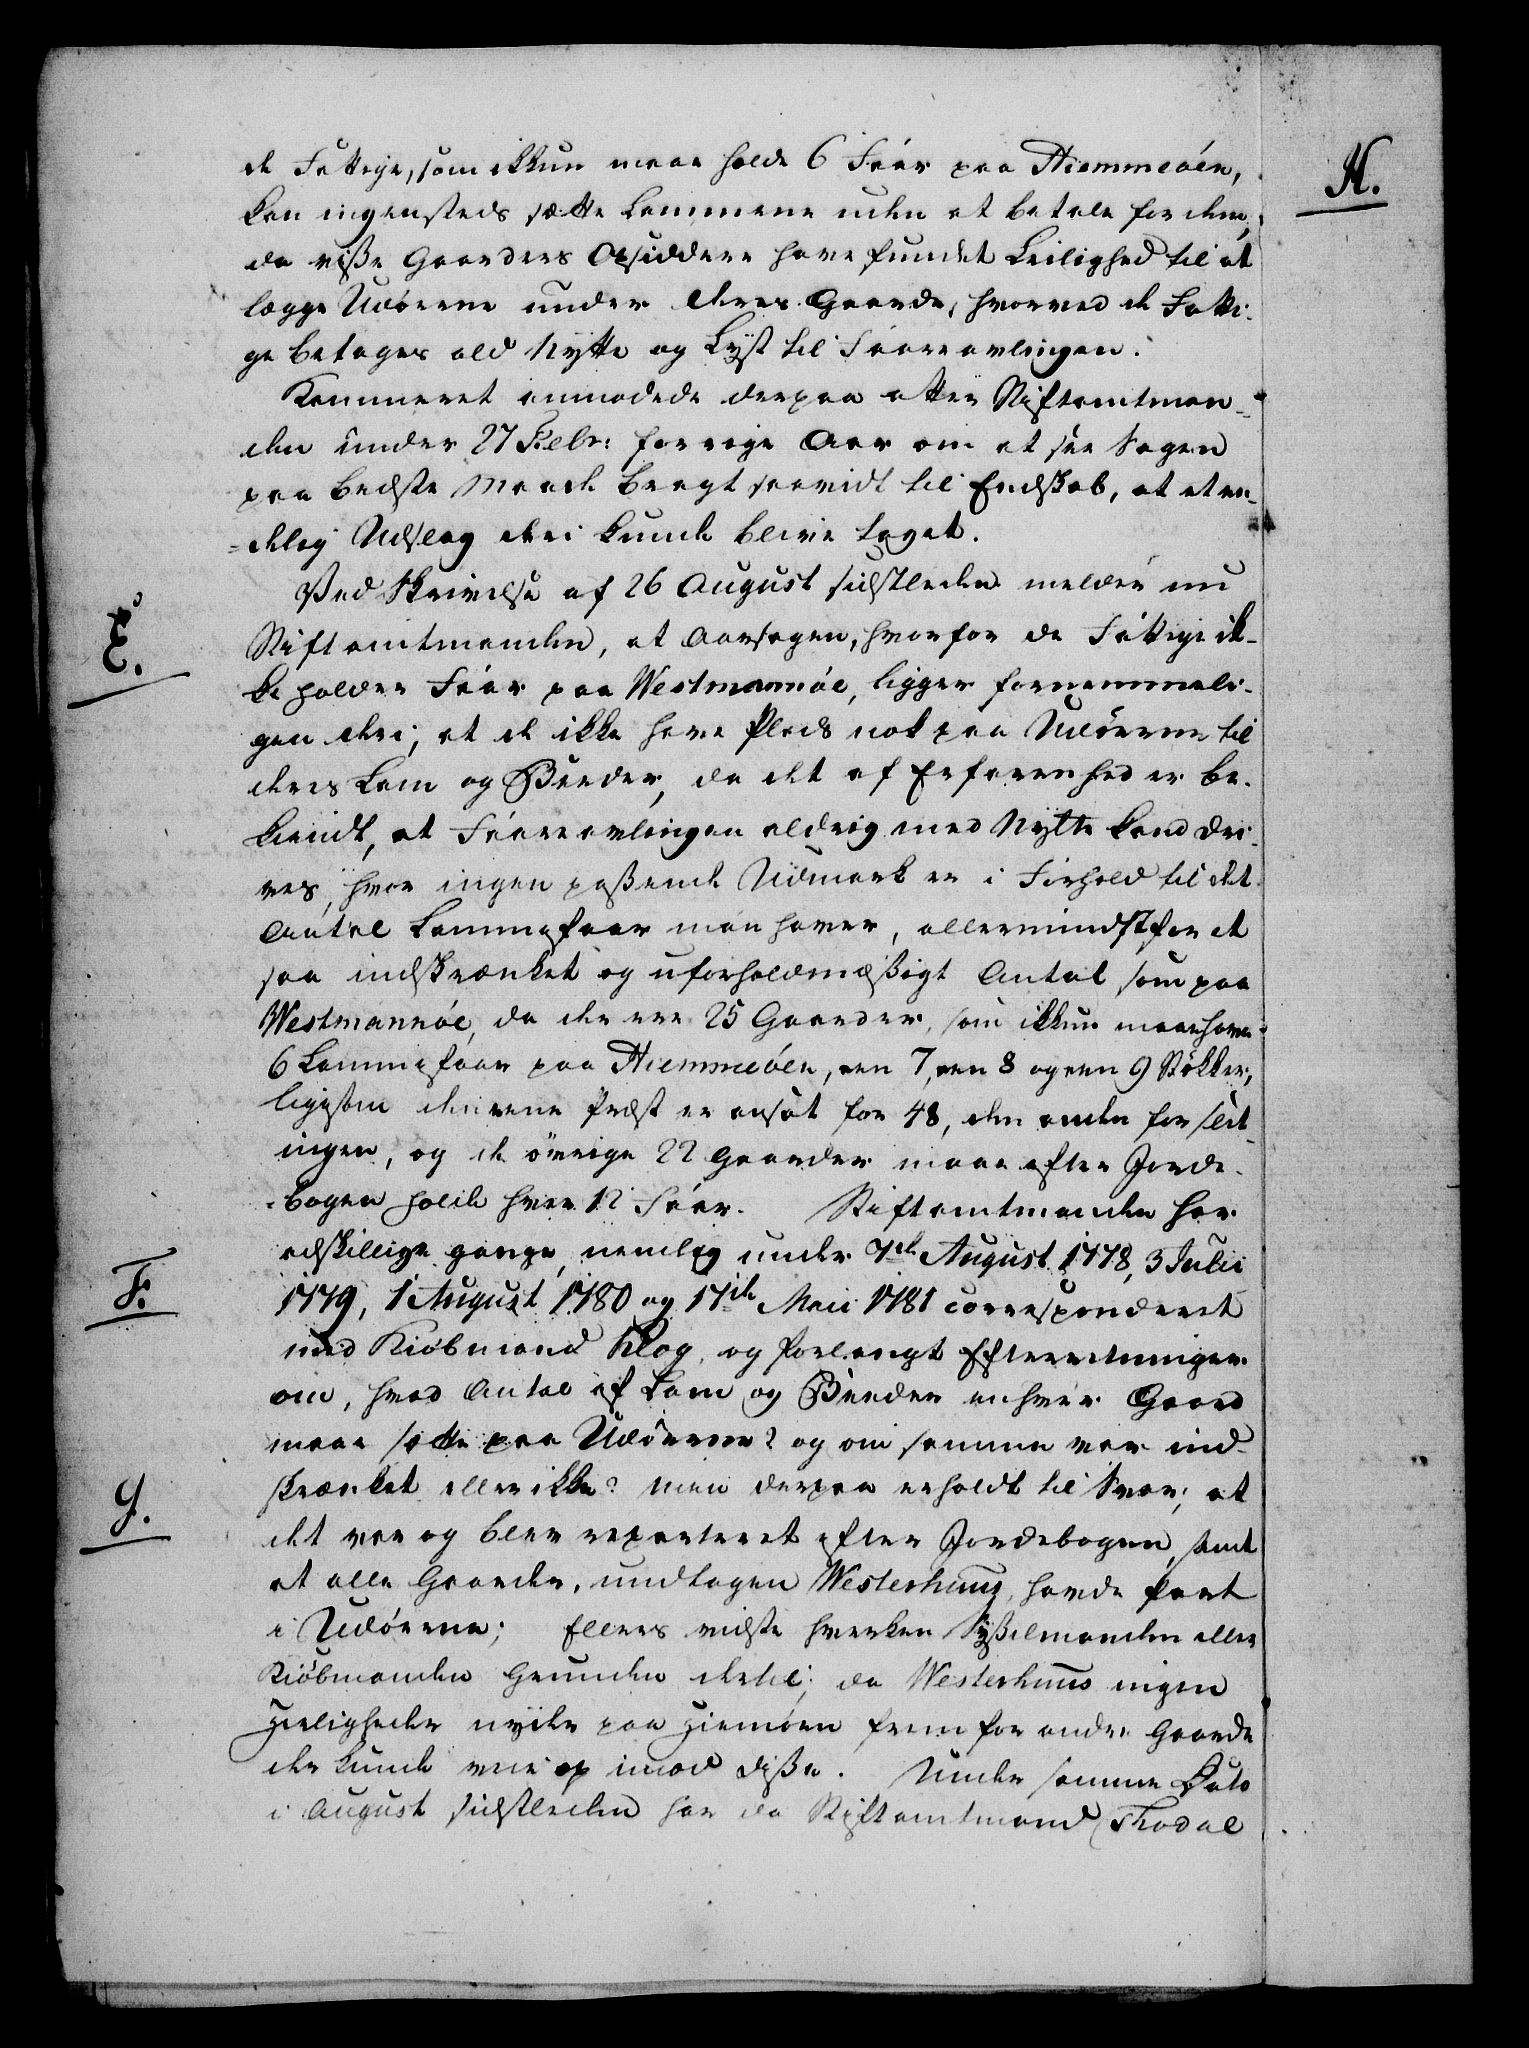 H.
de Fattige, som ikkun maae holde 6 Faar paa Hiemmeöen,
kan ingensteds sætte Lammene uden at betale for dem,
da viße Gaarders Opsiddere have fundet Leilighed til at
lægge Udöerne under deres Gaarde, hvorved de Fatti-
ge betages ald Nytte og Lyst til Faareavlingen.
Kammeret anmodede derpaa atter Stiftamtman-
den under 27 Febr: forrige Aar om at see Sagen
paa bedste Maade bragt saavidt til Endskab, at et en-
delig Udslag deri kunde blive taget.
E.
Ved Skrivelse af 26 August sidstleden melder nu
Stiftamtmanden, at Aarsagen, hvorfor de Fattige ik-
ke holder Faar paa Westmannöe, ligger fornemmeli-
gen deri, at de ikke have Plads nok paa Udöerne til
deres Lam og Beeder, da det af Erfarenhed er be-
kiendt, at Faareavlingen aldrig med Nytte kand dri-
ves, hvor ingen paßende Udmark er i Forhold til det
Antal Lammefaar man haver, allermindst for et
saa indskrænket og uforholdmæßigt Antal som paa
Westmannöe, da der ere 25 Gaarder, som ikkun maae have
6 Lammefaar paa Hiemmeöen, een 7, een 8 og een 9 Stökker,
ligesom den eene Præst er ansat for 48, den anden for slet
ingen, og de övrige 22 Gaarder maae efter Jorde-
bogen holde hver 12 Faar. Stiftamtmanden har
F.
adskillige gange, nemlig under 7de August 1778, 3 Julii
1779, 1 August 1780 og 17de Maii 1781 correspenderet
med Kiöbmand Klog, og forlangt Efterretninger
om, hvad Antal af Lam og Beeder enhver Gaard
maae sætte paa Udöerne? og om samme var ind-
skrænket eller ikke? men derpaa erholdt til Svar, at
G.
det var og blev reparteret efter Jordebogen, samt
at alle Gaarde, undtagen Westerhuus, havde Part
i Udöerne; Ellers vidste hverken Sysselmanden eller
Kiöbmanden Grunden dertil, da Westerhuus ingen
Herligheder nyder paa Hiemöen frem for andre Gaarde
der kunde veie op imod diße. Under samme Dato
i August sidstleden har da Stiftamtmand Thodal